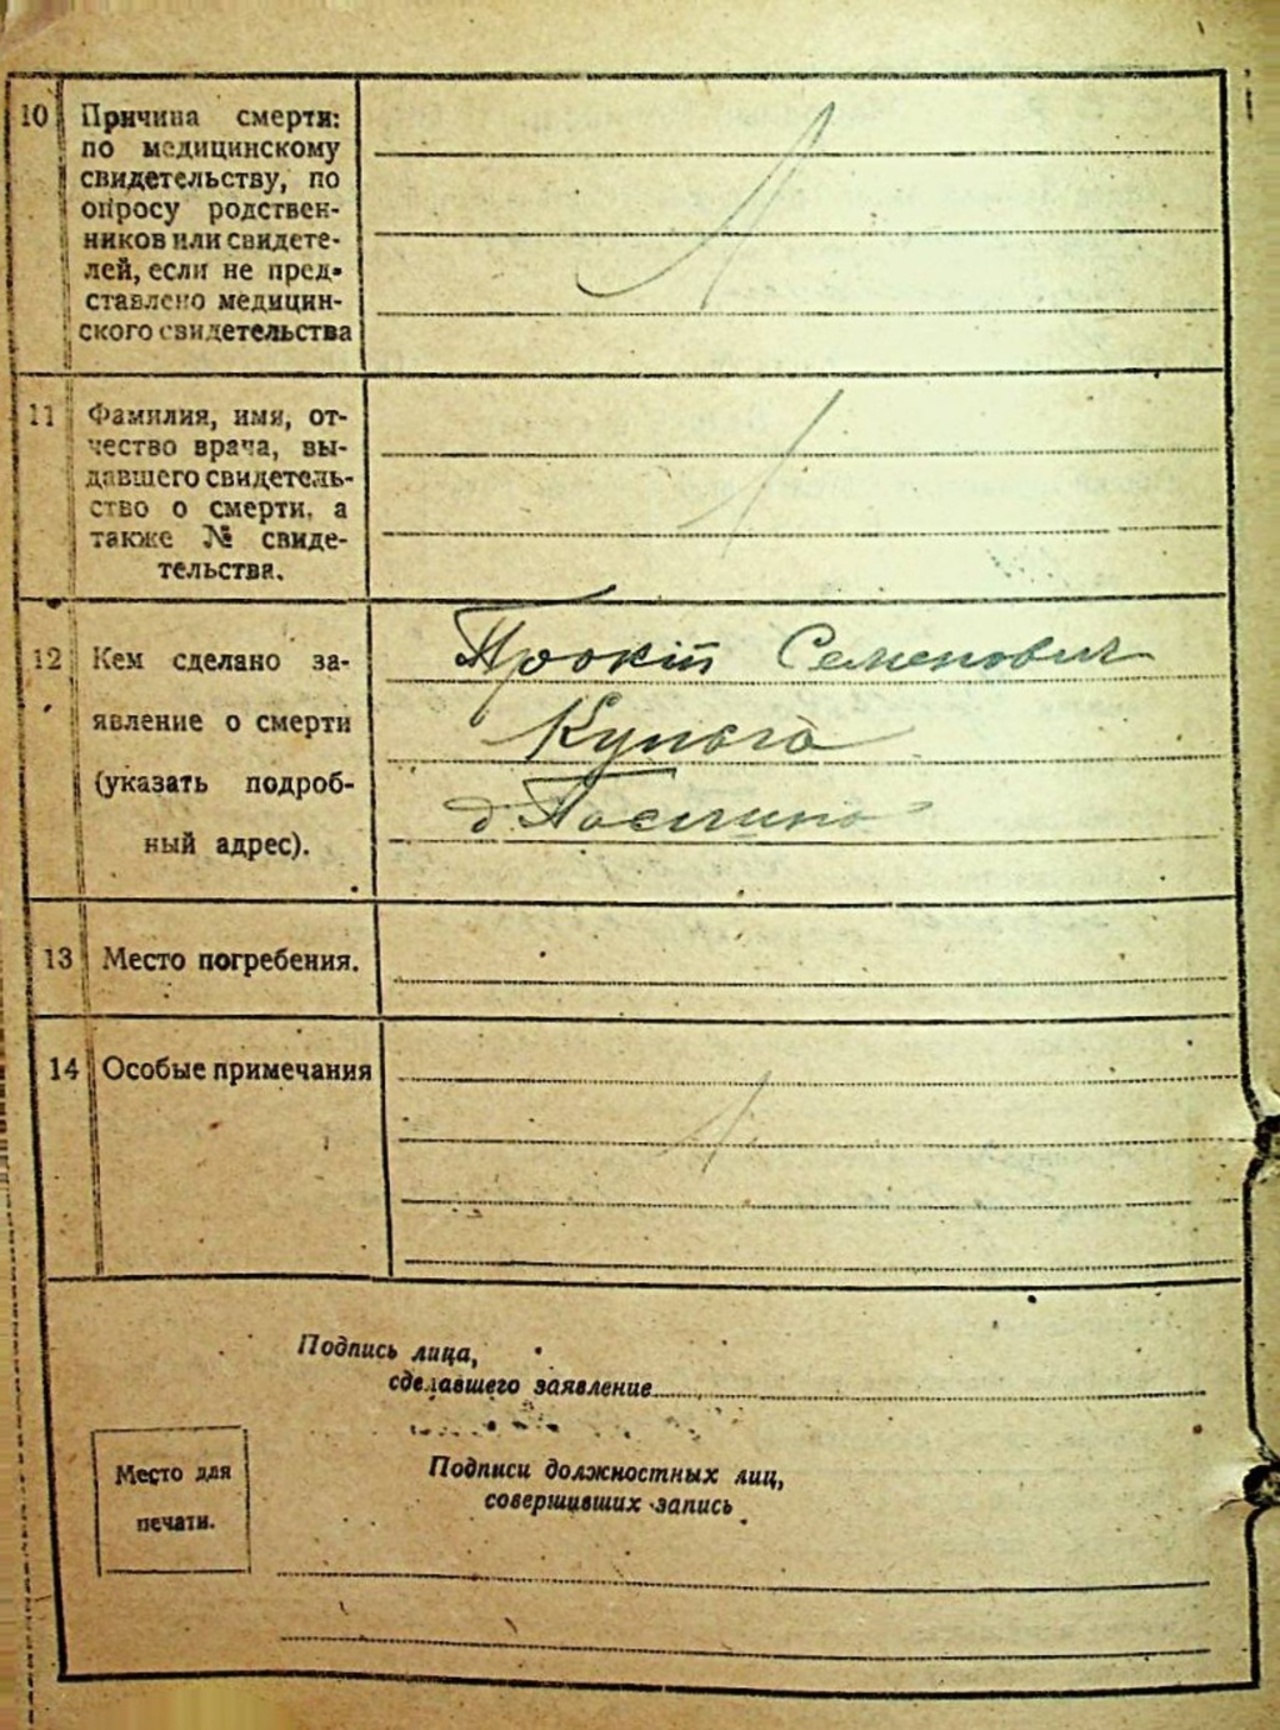 10 Причина смерти:
по медицинскому
свидетельству, по
опросу родствен-
ников или свидете-
лей, если не пред-
ставлено медицин-
ского свидетельства
11 Фамилия, имя, от-
чество врача, вы-
давшего свидетель-
ство о смерти, а
также № свиде-
тельства.
12 Кем сделано за-
явление о смерти
(указать подроб-
ный адрес).
Семенович
д.
13 Место погребения.
14 Особые примечания
Подпись лица,
сделавшего заявление
Место для
печати.
Подписи должностных лиц,
совершивших запись